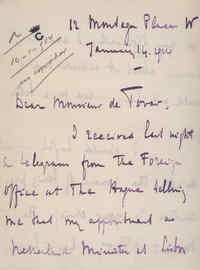 12 Montagu Place W
January 14. 1914
Dear Monsieur de Tovar,
I received last night
a telegram from the Foreign
Office at The Hague telling
me that my appointment as
Netherland Minister at Lisbon